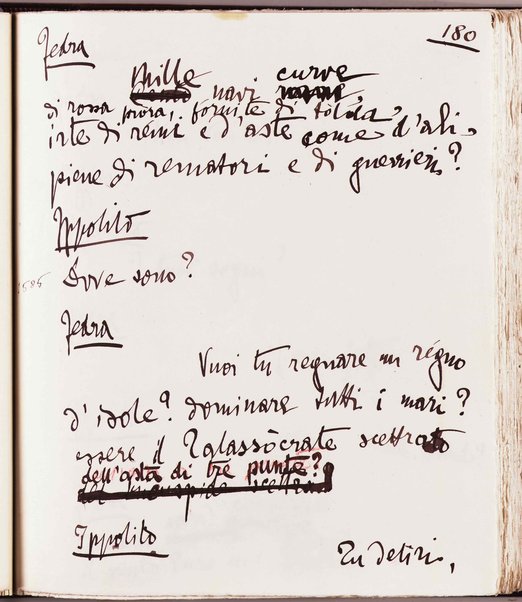 180
Fedra
Mille navi curve
di rossa prora, fornite di tolda,
irte di remi e d'aste come d'ali,
piene di rematori e di guerrieri?
Ippolito
1585
Dove sono?
Fedra
Vuoi tu regnare un régno
d'isole? dominare tutti i mari?
essere il Talassòcrate scettrato
dell'asta di tre punte?
Ippolito
Tu deliri,